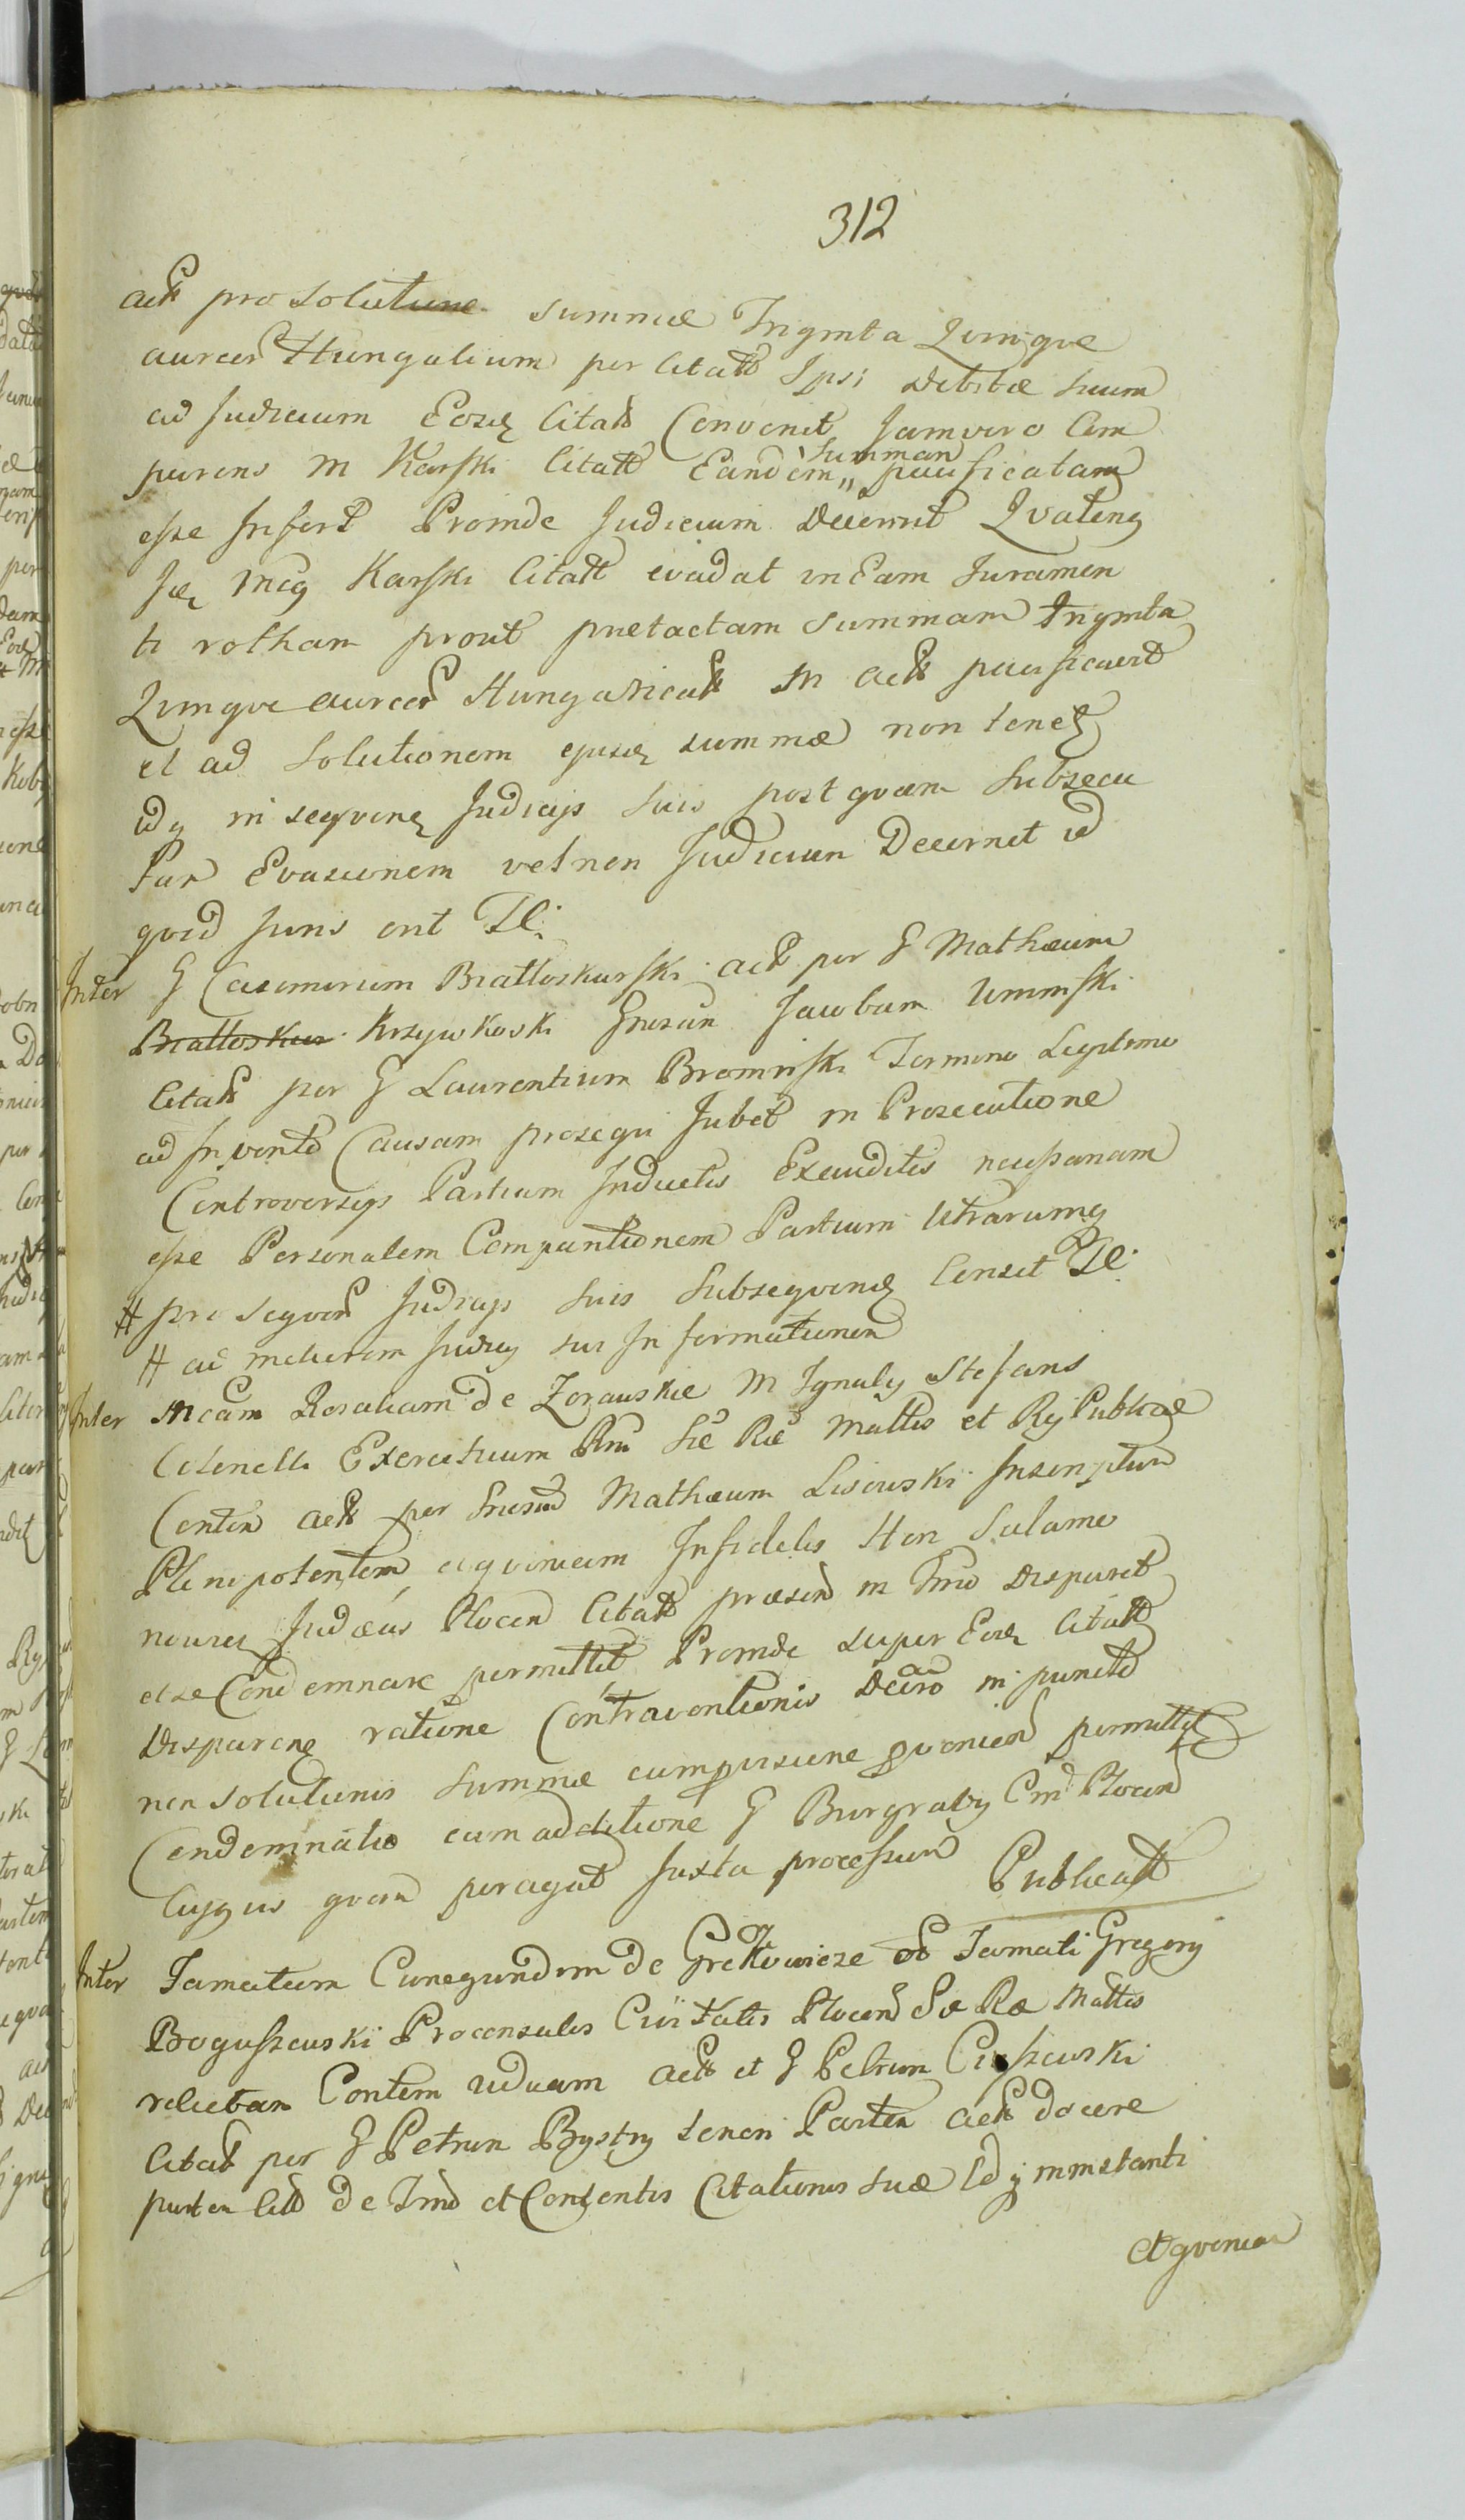 312
actt pro Solutione summæ Triginta Qvinqve
aureor Hungalium per Citatt Ipsi debitæ suum
ad Judicium Eosq Citatt Convenit Jamvero Com
parens M Karski Citatt Eandem,, Summam pacificatam
esse Infert Proinde Judicium Decernit Qvateng
Jdq Mcg Karski Citatt evadat in Eam Juramen
ti rotham prout prætactam Summam Trigmta
Qvinqve aureor Hungaricatt M actt pacificavit
et ad Solutionem ejusq summæ non tenet
idq in seqvenq Judicijs suis postqvam Subsecu
tur Evasionem vel non Judicium Decernet id
qvod Juris erit Tl.
Inter G Casimirum Białłoskurski actt per G Mathæum
Białłoskur Krzywkoski Gnosun Jacobum Uminski
Citatt per G Laurentium Brominski Termino Legitimo
ad Invento Causam prosequi Jubet in Prosecutione
Controversijs Partium Inductis Exauditis necessariam
esse Personalem Comparitionem Partium Utrarumq
# pro seqven Judicijs suis Subseqvend Censet Tl.
# ad meliorem Judicij sui Informationem
Inter Mcam Rosaliam de Zorauskie M Ignatij Stefans
Colonelli Exercituum Rni Sæ Ræ Mattis et Rij Publicæ
Contem actt per Gnosum Mathæum Lisouski Inscriptum
Plenipotentem aqvoniam Infidelis Hon Salamo
nouicz Judæus Plocen Citatt præsen in Tmo disparet
et se Condemnare permittit Proinde super Eosq Citatt
Disparenq ratione Contraventionis Decro in puncto
non solutionis Summæ cum provisione proveniend permittit
Condemnatio cum additione G Burgraby Cri Plocen
Cujqus qvam peragat Juxta processum Publicatt
Inter Famatam Cunegundem de Grettowicze ol Famati Gregory
Boguszeuski Proconsulis Ciuitatis Plocen Sæ Ræ Mattis
relictam Contem viduam actt et G Petrum Ciszeuski
Citatt per G Petrum Bystry teneri Partem actt docere
partem Citt de Tmo et Contentis Citationis suæ Idq instanti
Aqvoniam